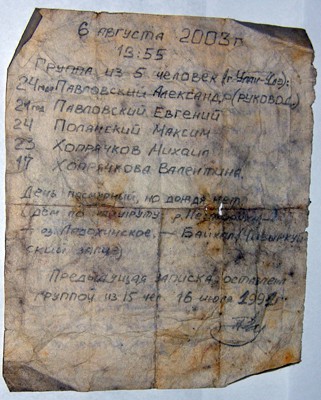 6 августа 2003г
19:55
Группа из 5 человек (г. Улан-Удэ):
24год Павловский Александр (руковод.)
21год Павловский Евгений
24 Полянский Максим
23 Хопрячков Михаил
17 Хопрячкова Валентина.
День пасмурный, но дождя нет.
Идём по маршруту р.
– оз. – Байкал (Чивыркуй-
ский залив)
Предыдущая записка оставлена
группой из 15 чел 16 июля